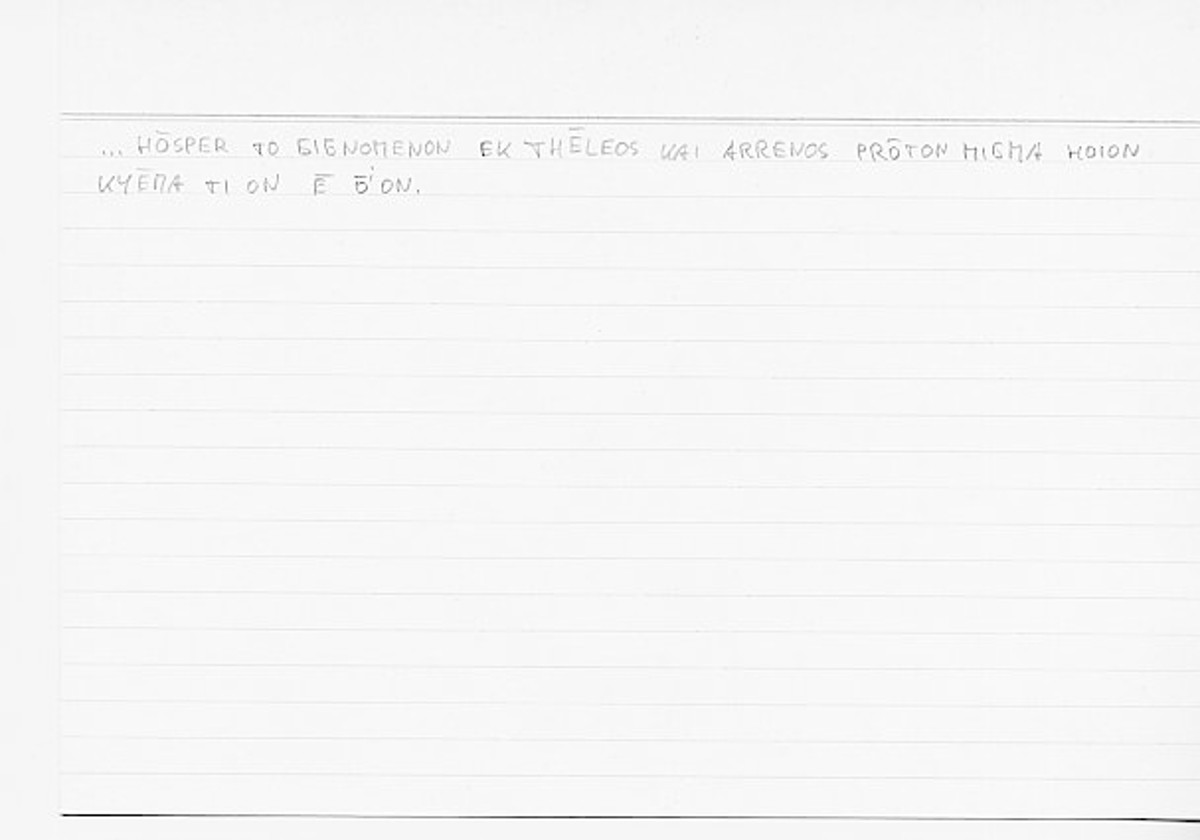 ... HŌSPER TO GIGNOMENON EK THĒLEOS KAI ARRENOS PRŌTON MIGMA HOION
KYĒMA TI ON Ē ŌION.